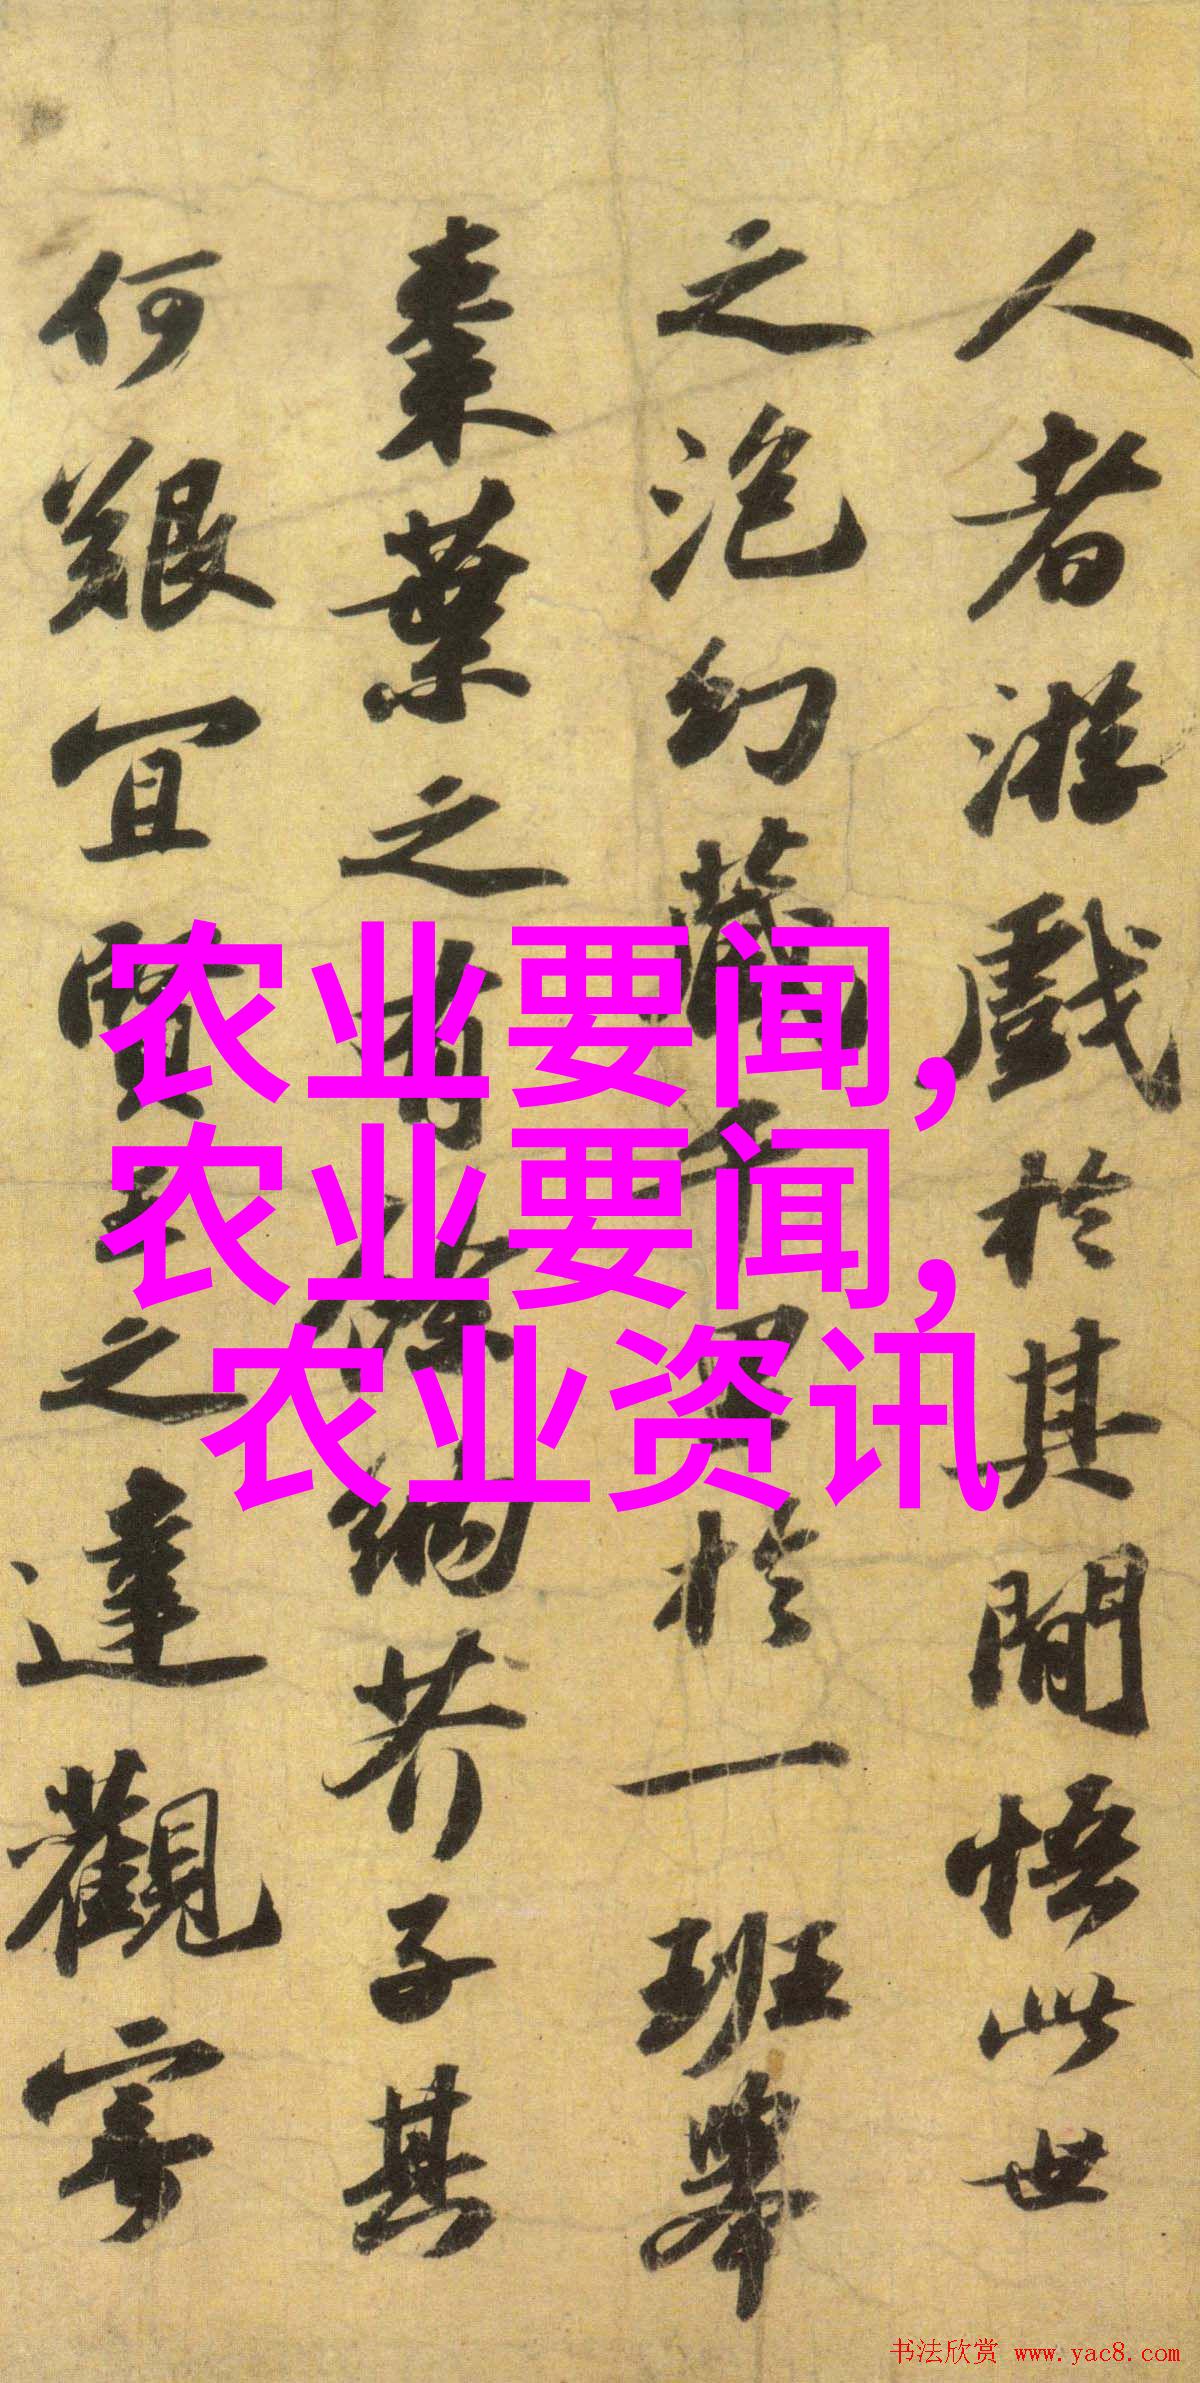 人者游戲於其間悟此世
之泡幻藏千里於一班舉
棗葉之有餘納芥子其
何艱宜賢王之達觀寄
农业要闻,
农业要闻,
农业资讯
书法欣赏 www.yac8.com